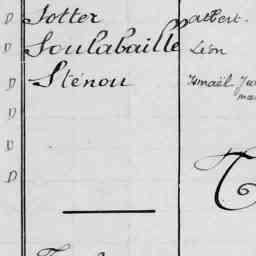 D Sotter Albert.
D Soulabaille Léon
D Sténou Ismaël
D
D
D
T